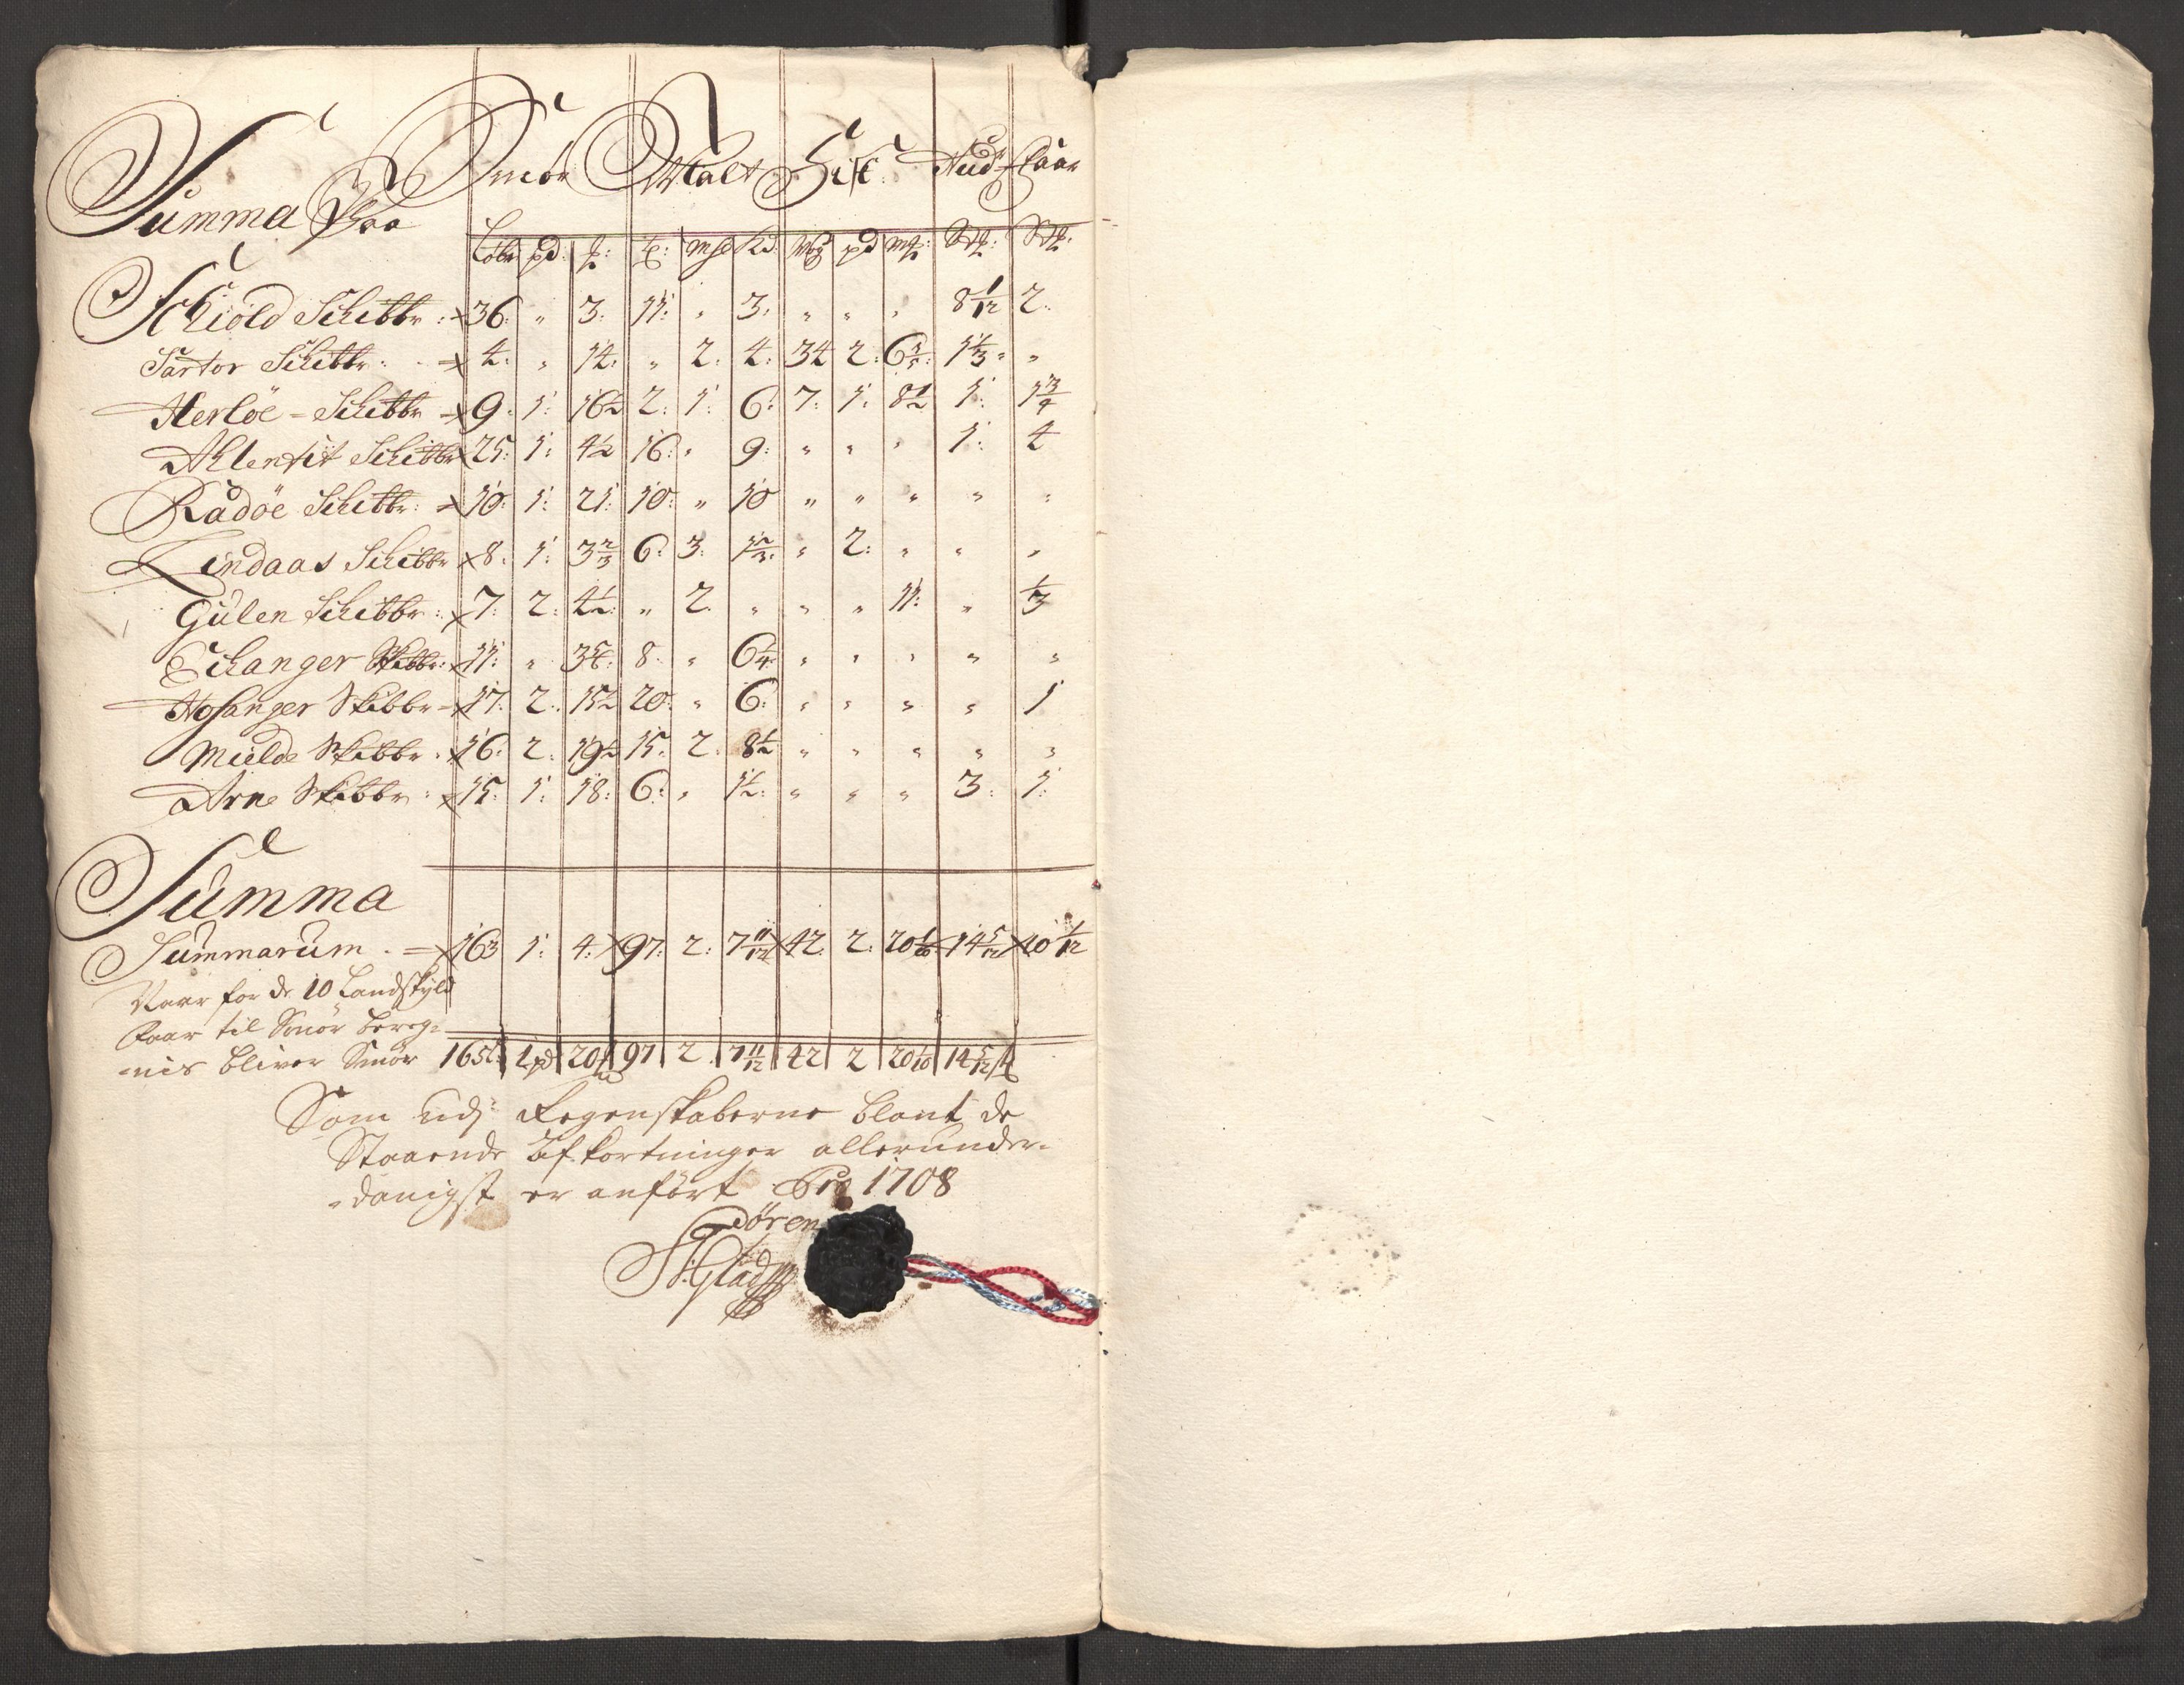 Smör Malt Fisk Hud Faar
Summa Paa
Löber pd: ℔: Tr: Mhl Kd: Wog pd mk: Stk: Stk:
Schiold Schibbr: 36: " 3: 11: " 3: " " " 8 1/12 2.
Sartor Schibbr: 4: " 14: " 2: 4: 34 2: 6 3/5: 1 1/3: "
Herlöe - Schibbr 9: 1: 16 1/2 2: 1: 6: 7: 1: 8 1/2 1: 1 3/4
Ahlenfit Schibbr 25: 1: 4 1/2 16: " 9: " " " 1: 4
Radöe Schibbr: 10: 1: 21: 10: " 10 " " " " "
Lindaas Schibbr 8: 1: 3 2/3 6: 3: 1 2/3: " 2: " " "
Gulen Schibbr: 7: 2: 4 1/2: " 2. " " " 11: " 1/3
Echanger Skibbr: 11: " 3 5/6: 8. " 6 1/4: " " " " "
Hosanger Skibbr 17: 2: 15 1/2 20: " 6: " " " " 1
Mielde Skibbr: 16: 2: 19 1/2 15: 2: 8 1/2 " " " " "
Arne Skibbr: 15: 1: 18: 6: " 1 1/2: " " " 3: 1:
Summa
Summarum. = 163 1: 4: 97: 2: 7 11/12 42: 2: 20 1/10 14 5/12 10 1/12
Naar for de 10 Landskyld
Faar til Smör bereg-
nis bliver Smör 165 L: 1 pd 20 97 2 7 11/12 42 2 20 1/10 14 5/12
Som udj Regenskaberne blant de
Staaende Afkortninger allerunder-
danigst er anfört Pro 1708
Sören